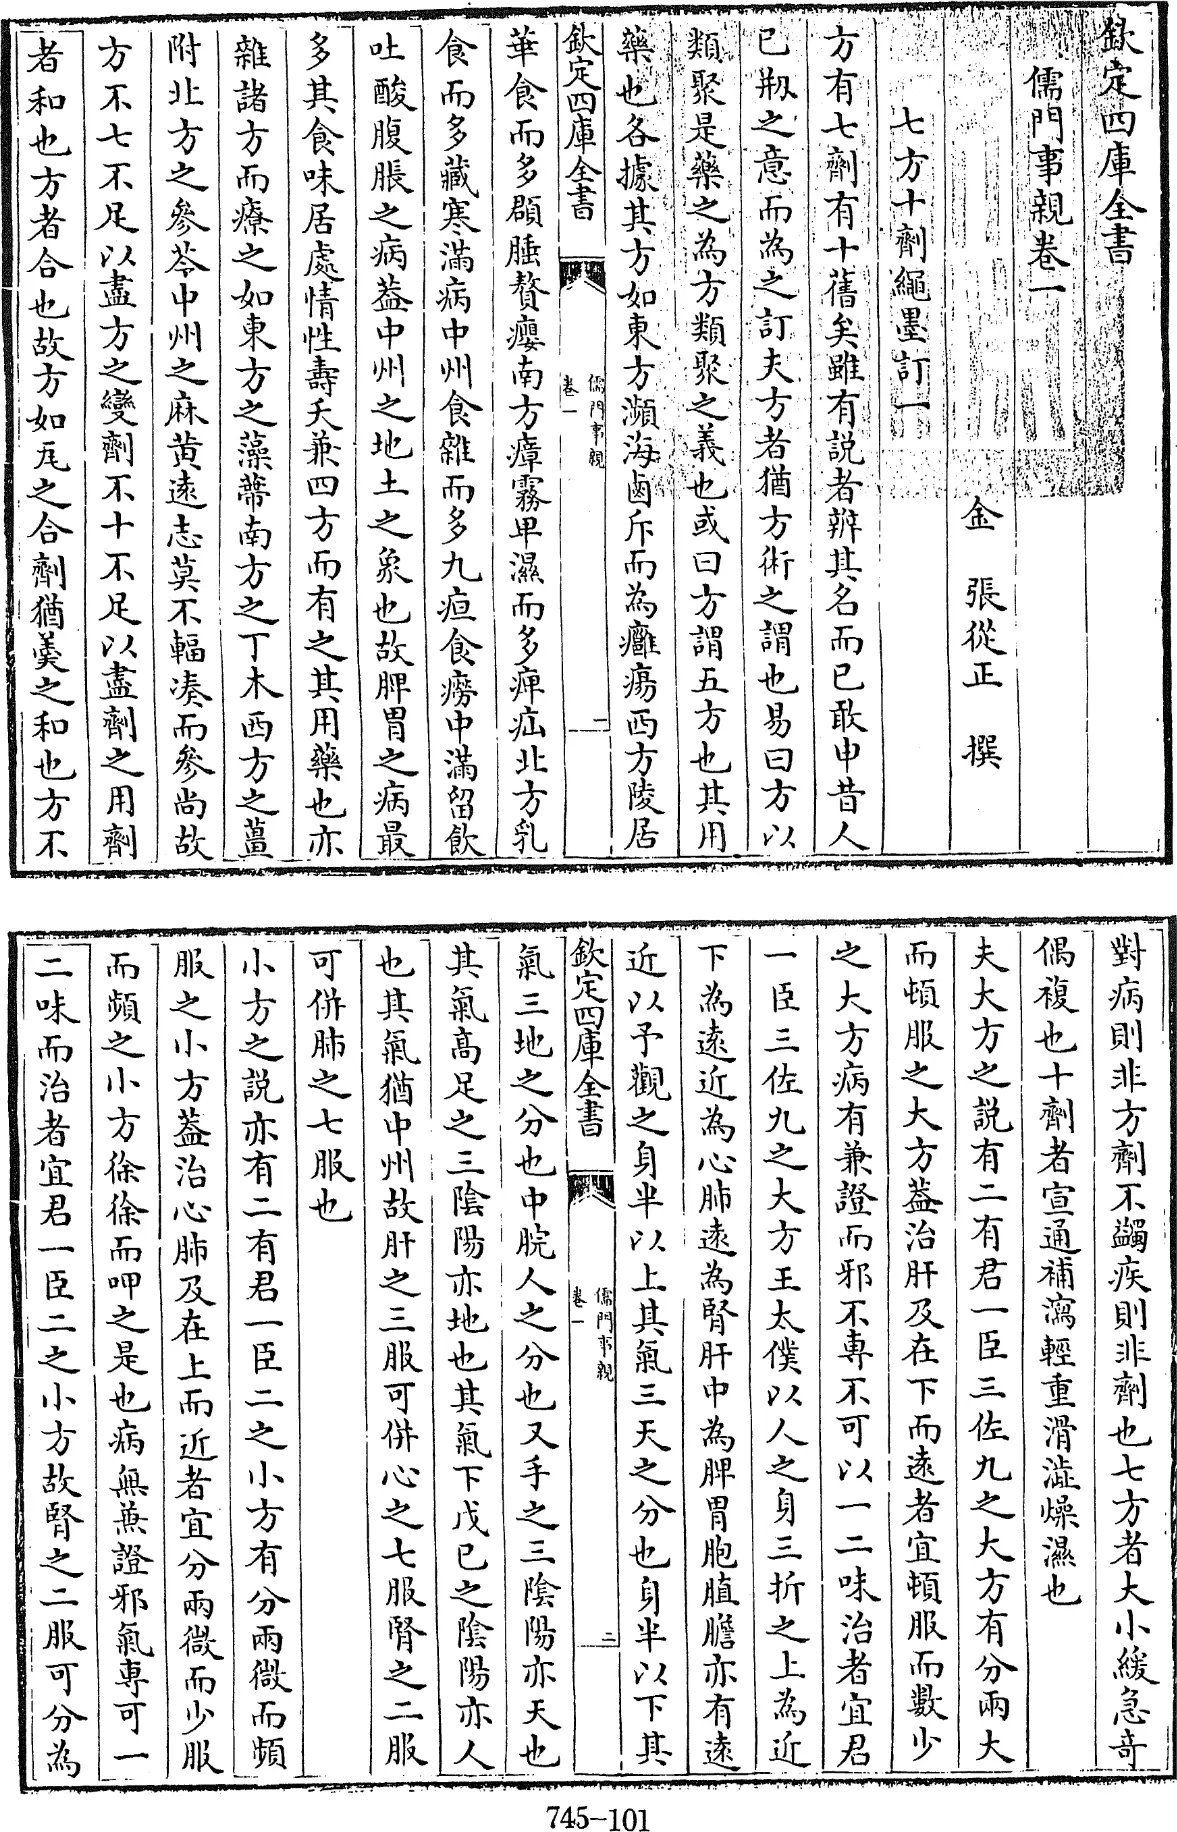 欽定四庫全書
儒門事親卷一
金　張從正　撰
七方十劑繩墨訂一
方有七劑有十舊矣雖有説者辨其名而已敢申昔人
已剏之意而為之訂夫方者猶方術之謂也易曰方以
類聚是藥之為方類聚之義也或曰方謂五方也其用
藥也各據其方如東方瀕海鹵斥而為癰瘍西方陵居
欽定四庫全書
儒門事親
卷一
二
華食而多頵腄贅癭南方瘴霧卑濕而多痺疝北方乳
食而多藏寒滿病中州食雜而多九疸食癆中滿留飲
吐酸腹脹之病葢中州之地土之象也故脾胃之病最
多其食味居處情性壽夭兼四方而有之其用藥也亦
雜諸方而療之如東方之藻蔕南方之丁木西方之薑
附北方之參苓中州之麻黄遠志莫不輻凑而參尚故
方不七不足以盡方之變劑不十不足以盡劑之用劑
者和也方者合也故方如瓦之合劑猶羮之和也方不
對病則非方劑不蠲疾則非劑也七方者大小緩急奇
偶複也十劑者宣通補瀉輕重滑澁燥濕也
夫大方之説有二有君一臣三佐九之大方有分兩大
而頓服之大方葢治肝及在下而遠者宜頓服而數少
之大方病有兼證而邪不專不可以一二味治者宜君
一臣三佐九之大方王太僕以人之身三折之上為近
下為遠近為心肺遠為腎肝中為脾胃胞䐈膽亦有遠
近以予觀之身半以上其氣三天之分也身半以下其
欽定四庫全書
儒門事親
卷一
二
氣三地之分也中脘人之分也又手之三陰陽亦天也
其氣高足之三陰陽亦地也其氣下戊已之陰陽亦人
也其氣猶中州故肝之三服可併心之七服腎之二服
可併肺之七服也
小方之説亦有二有君一臣二之小方有分兩微而頻
服之小方葢治心肺及在上而近者宜分兩微而少服
而頻之小方徐徐而呷之是也病無兼證邪氣專可一
二味而治者宜君一臣二之小方故腎之二服可分為
745-101